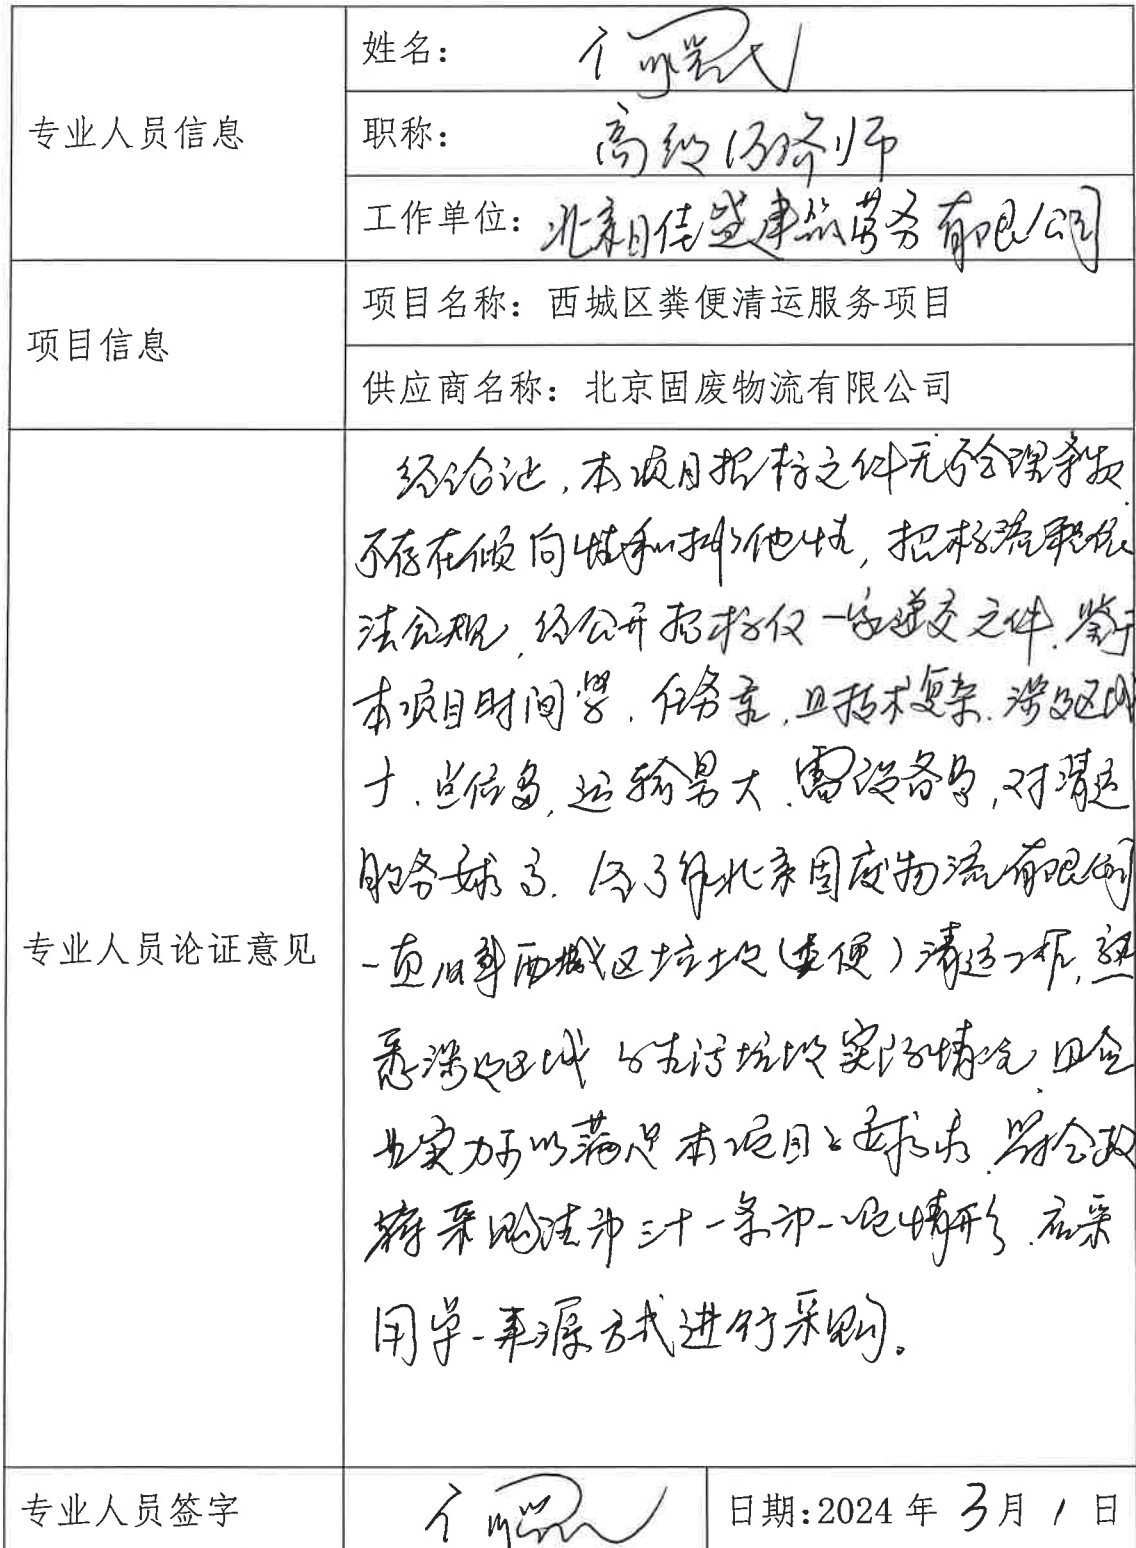 专业人员信息
姓名：
职称：高级经济师
工作单位：北京日佳盛建筑劳务有限公司
项目信息
项目名称：西城区粪便清运服务项目
供应商名称：北京固废物流有限公司
专业人员论证意见
经论证，本项目招标文件无不合理条款
不存在倾向性和排他性，招标流程依
法合规，经公开招标仅一家递交文件，鉴于
本项目时间紧，任务重，且技术复杂，涉及区域
大，点位多，运输量大，需设备多，对清运
服务要求高，经了解北京固废物流有限公司
一直从事西城区垃圾（粪便）清运工作，熟
悉涉及区域 生活垃圾实际情况，且企
业实力可以满足本项目之要求，符合政
府采购法第三十一条第一项情形，应采
用单一来源方式进行采购。
专业人员签字
日期:2024年3月1日